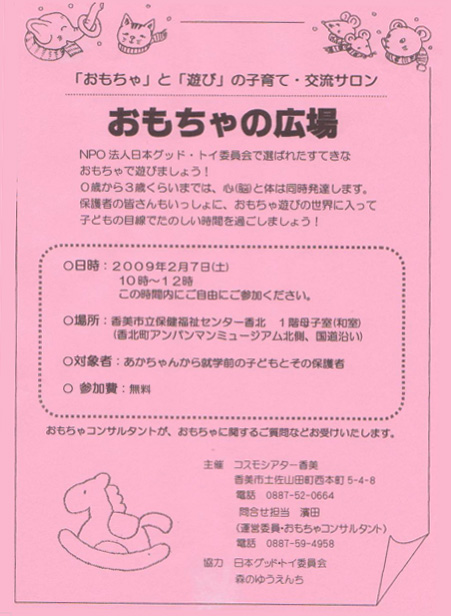 「おもちゃ」と「遊び」の子育て・交流サロン
おもちゃの広場
NPO法人日本グッド・トイ委員会で選ばれたすてきな
おもちゃで遊びましょう！
０歳から３歳くらいまでは、心(脳)と体は同時発達します。
保護者の皆さんもいっしょに、おもちゃ遊びの世界に入って
子どもの目線でたのしい時間を過ごしましょう！
○日時：２００９年２月７日(土)
１０時～１２時
この時間内にご自由にご参加ください。
○場所：香美市立保健福祉センター香北　１階母子室(和室)
(香北町アンパンマンミュージアム北側、国道沿い)
○対象者：あかちゃんから就学前の子どもとその保護者
○ 参加費：無料
おもちゃコンサルタントが、おもちゃに関するご質問などお受けいたします。
主催　コスモシアター香美
香美市土佐山田町西本町5-4-8
電話　0887-52-0664
問合せ担当　濱田
(運営委員・おもちゃコンサルタント)
電話　0887-59-4958
協力　日本グッド・トイ委員会
森のゆうえんち